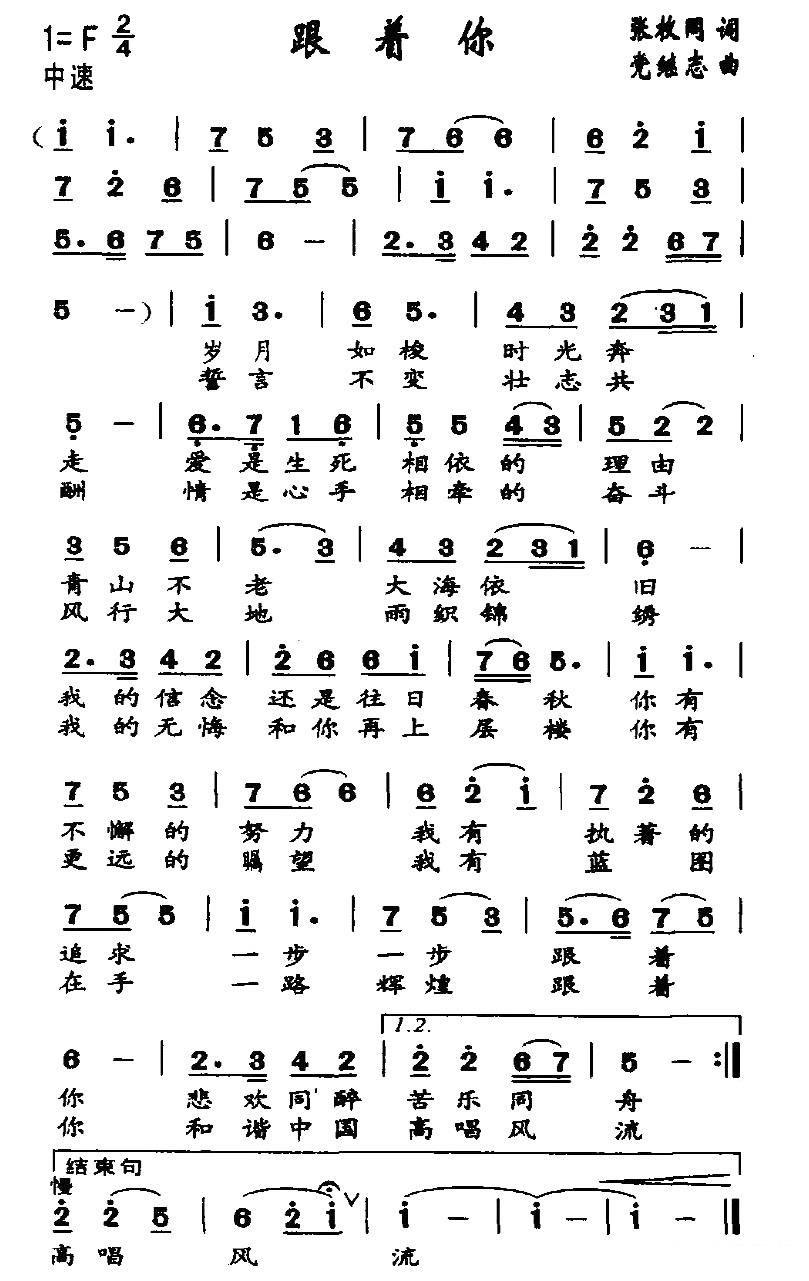 1=F 2/4 跟着你 张枚同 词
中速 党继志 曲
( i i. | 7 5 3 | 7 6 6 | 6 2 i |
7 2 6 | 7 5 5 | i i. | 7 5 3 |
5. 6 7 5 | 6 － | 2. 3 4 2 | 2 2 6 7 |
5 －) | i 3. | 6 5. | 4 3 2 3 1 |
岁月 如梭 时光奔
誓言 不变 壮志共
5 － | 6. 7 1 6 | 5 5 4 3 | 5 2 2 |
走 爱是生死 相依的 理由
酬 情是心手 相牵的 奋斗
3 5 6 | 5. 3 | 4 3 2 3 1 | 6 － |
青山不老 大海依旧
风行大地 雨织锦绣
2. 3 4 2 | 2 6 6 i | 7 6 5. | i i. |
我的信念 还是往日 春秋 你有
我的无悔 和你再上 层楼 你有
7 5 3 | 7 6 6 | 6 2 i | 7 2 6 |
不懈的 努力 我有 执著的
更远的 瞩望 我有 蓝图
7 5 5 | i i. | 7 5 3 | 5. 6 7 5 |
追求 一步 一步 跟着
在手 一路 辉煌 跟着
1.2.
6 － | 2. 3 4 2 | 2 2 6 7 | 5 － :||
你 悲欢同醉 苦乐同舟
你 和谐中国 高唱风流
结束句
慢
2 2 5 | 6 2 i ∨ | i － | i － | i － ||
高唱 风 流